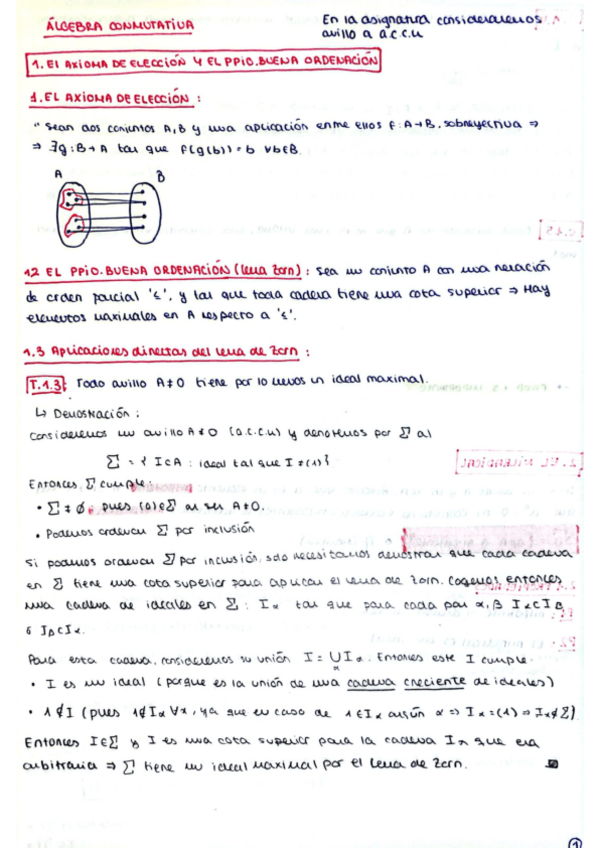 ÁLGEBRA CONMUTATIVA
En la asignatura consideraremos
anillo a a.c.c.u
1. El AXIOMA DE ELECCIÓN Y EL PPIO. BUENA ORDENACIÓN
1. EL AXIOMA DE ELECCIÓN :
" Sean dos conjuntos A, B y una aplicación entre ellos f: A→B, sobreyectiva ⇒
⇒ ∃g: B→A tal que f(g(b)) = b ∀b∈B.
A B
1.2 EL PPIO. BUENA ORDENACIÓN (Lema Zorn) : Sea un conjunto A con una relación
de orden parcial '≤', y tal que toda cadena tiene una cota superior ⇒ Hay
elementos maximales en A respecto a '≤'.
1.3 Aplicaciones directas del Lema de Zorn :
T.1.3: Todo anillo A≠0 tiene por lo menos un ideal maximal.
↳ Demostración :
Consideremos un anillo A≠0 (a.c.c.u) y denotemos por Σ al
Σ = { I⊂A : ideal tal que I≠(1)}
Entonces Σ cumple:
• Σ ≠ ∅, pues (0)∈Σ al ser A≠0.
• Podemos ordenar Σ por inclusión
Si podemos ordenar Σ por inclusión, solo necesitamos demostrar que cada cadena
en Σ tiene una cota superior para aplicar el Lema de Zorn. Cogemos entonces
una cadena de ideales en Σ : Iα tal que para cada par α, β Iα⊂Iβ
ó Iβ⊂Iα.
Para esta cadena, consideremos su unión I = ∪Iα. Entonces este I cumple.
α
• I es un ideal (porque es la unión de una cadena creciente de ideales)
• 1∉I (pues 1∉Iα ∀α, ya que en caso de 1∈Iα algún α ⇒ Iα=(1) ⇒ Iα∉Σ).
Entonces I∈Σ y I es una cota superior para la cadena Iα que era
arbitraria ⇒ Σ tiene un ideal maximal por el Lema de Zorn.
1